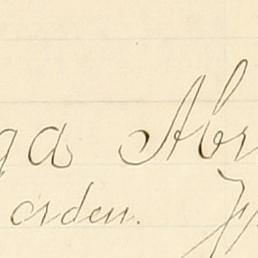 ga Abr
orden.